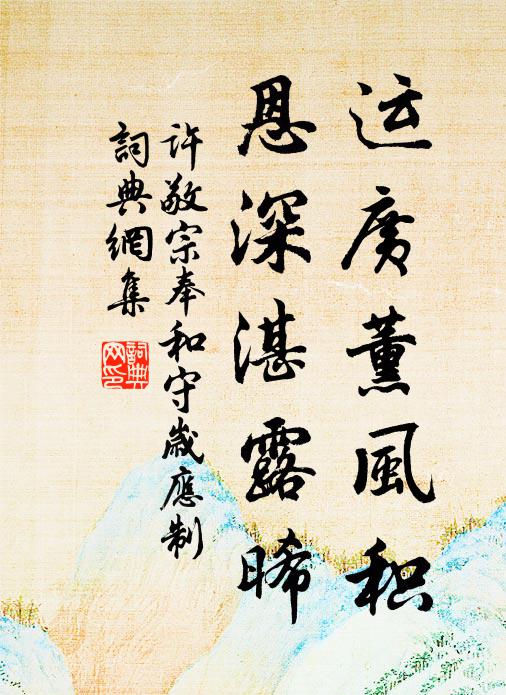 运广薰風积
恩深湛露晞
许敬宗奉和守歲應制
詞典網集
詞典
网印